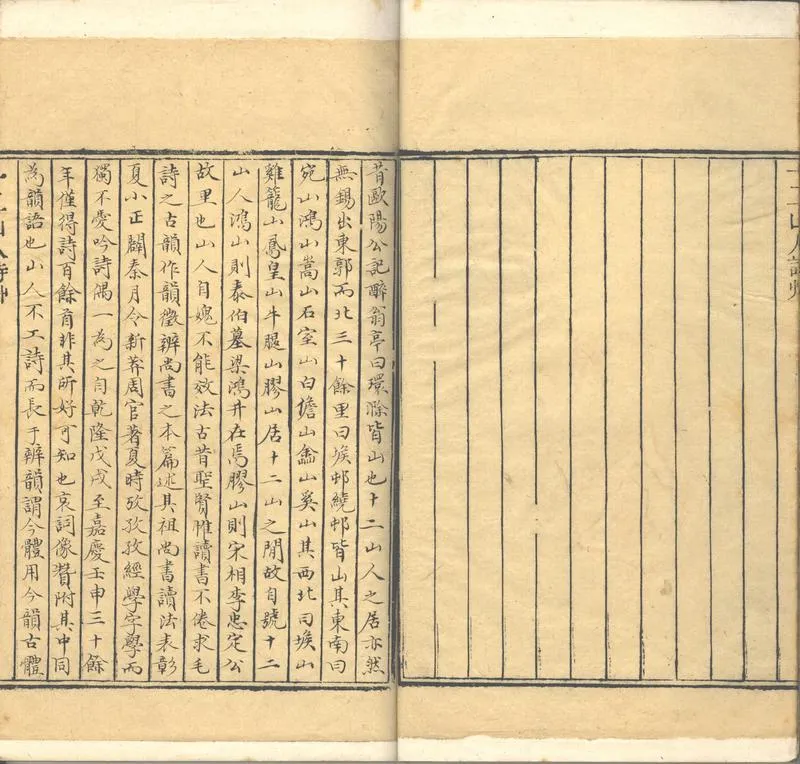 十二山人詩艸
昔歐陽公記醉翁亭曰環滁皆山也十二山人之居亦然
無錫出東郭而北三十餘里曰堠邨繞邨皆山其東南曰
宛山鴻山嵩山石室山白擔山龕山奚山其西北曰堠山
雞籠山鳳皇山牛腿山膠山居十二山之閒故自號十二
山人鴻山則泰伯墓梁鴻井在焉膠山則宋相李忠定公
故里也山人自媿不能效法古昔聖賢惟讀書不倦求毛
詩之古韻作韻徵辨尚書之本篇述其祖尚書讀法表彰
夏小正闢秦月令新莽周官著夏時攷孜孜經學字學而
獨不愛吟詩偶一為之自乾隆戊戌至嘉慶壬申三十餘
年僅得詩百餘首非其所好可知也哀詞像贊附其中同
為韻語也山人不工詩而長于辨韻謂今體用今韻古體
十二山人詩艸